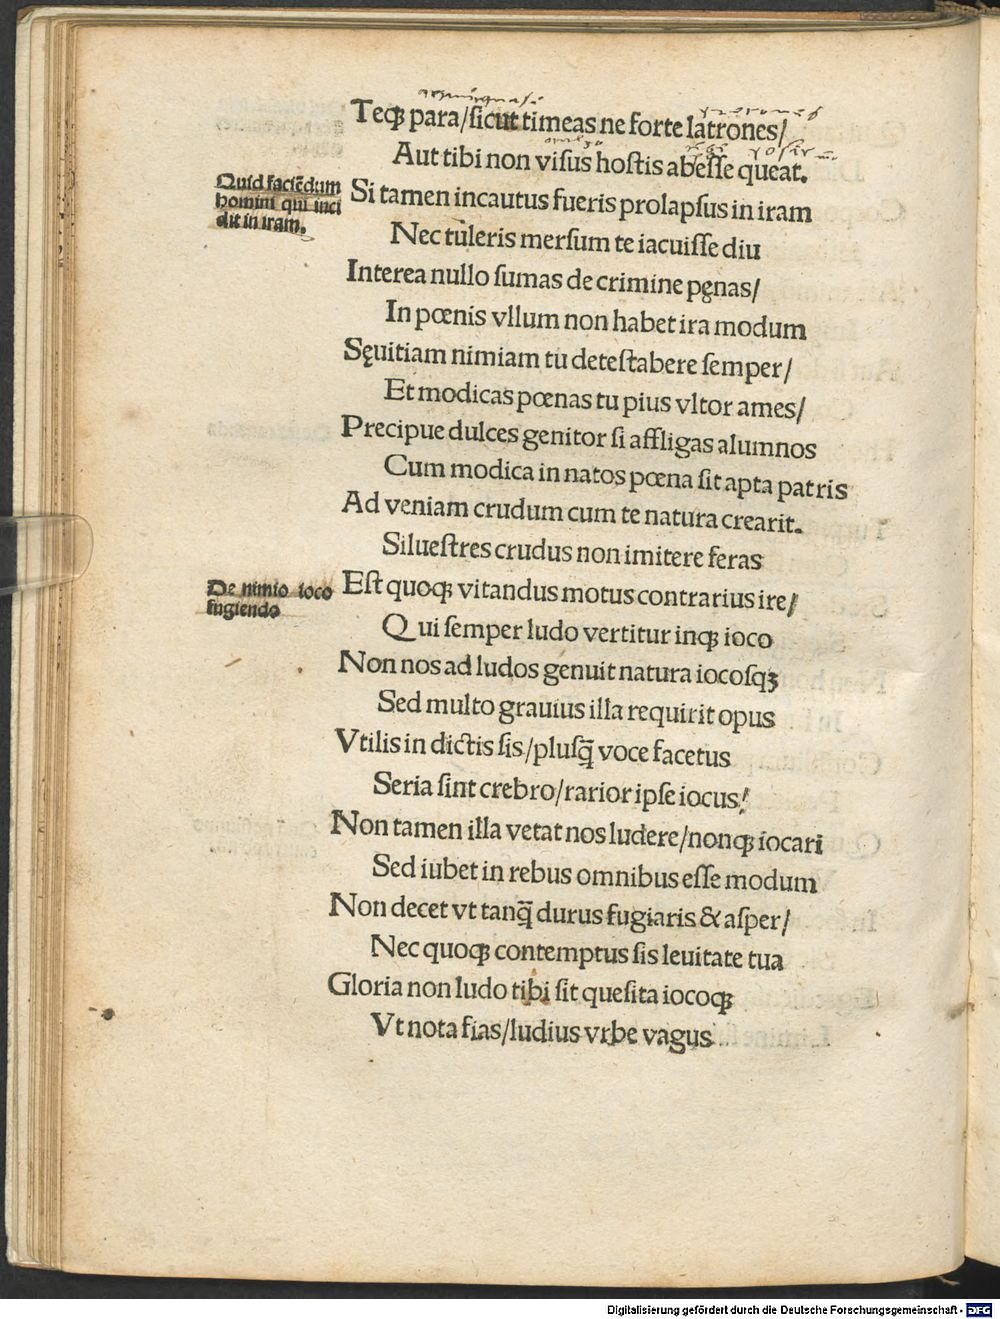 Teqꝫ para/ſicut timeas ne forte latrones/
Aut tibi non viſus hoſtis abeſſe queat.
Quid faciẽdum
homini qui inci
dit in iram.
Si tamen incautus fueris prolapſus in iram
Nec tuleris merſum te iacuiſſe diu
Interea nullo ſumas de crimine pęnas/
In pœnis vllum non habet ira modum
Sęuitiam nimiam tu deteſtabere ſemper/
Et modicas pœnas tu pius vltor ames/
Precipue dulces genitor ſi affligas alumnos
Cum modica in natos pœna ſit apta patris
Ad veniam crudum cum te natura crearit.
Silueſtres crudus non imitere feras
De nimio ioco
fugiendo
Eſt quoqꝫ vitandus motus contrarius ire/
Qui ſemper ludo vertitur inqꝫ ioco
Non nos ad ludos genuit natura iocoſqꝫ
Sed multo grauius illa requirit opus
Vtilis in dictis ſis/pluſq̃ voce facetus
Seria ſint crebro/rarior ipſe iocus/
Non tamen illa vetat nos ludere/nonqꝫ iocari
Sed iubet in rebus omnibus eſſe modum
Non decet vt tanq̃ durus fugiaris & aſper/
Nec quoqꝫ contemptus ſis leuitate tua
Gloria non ludo tibi ſit queſita iocoqꝫ
Vt nota fias/ludius vrbe vagus
Digitalisierung gefördert durch die Deutsche Forschungsgemeinschaft - DFG